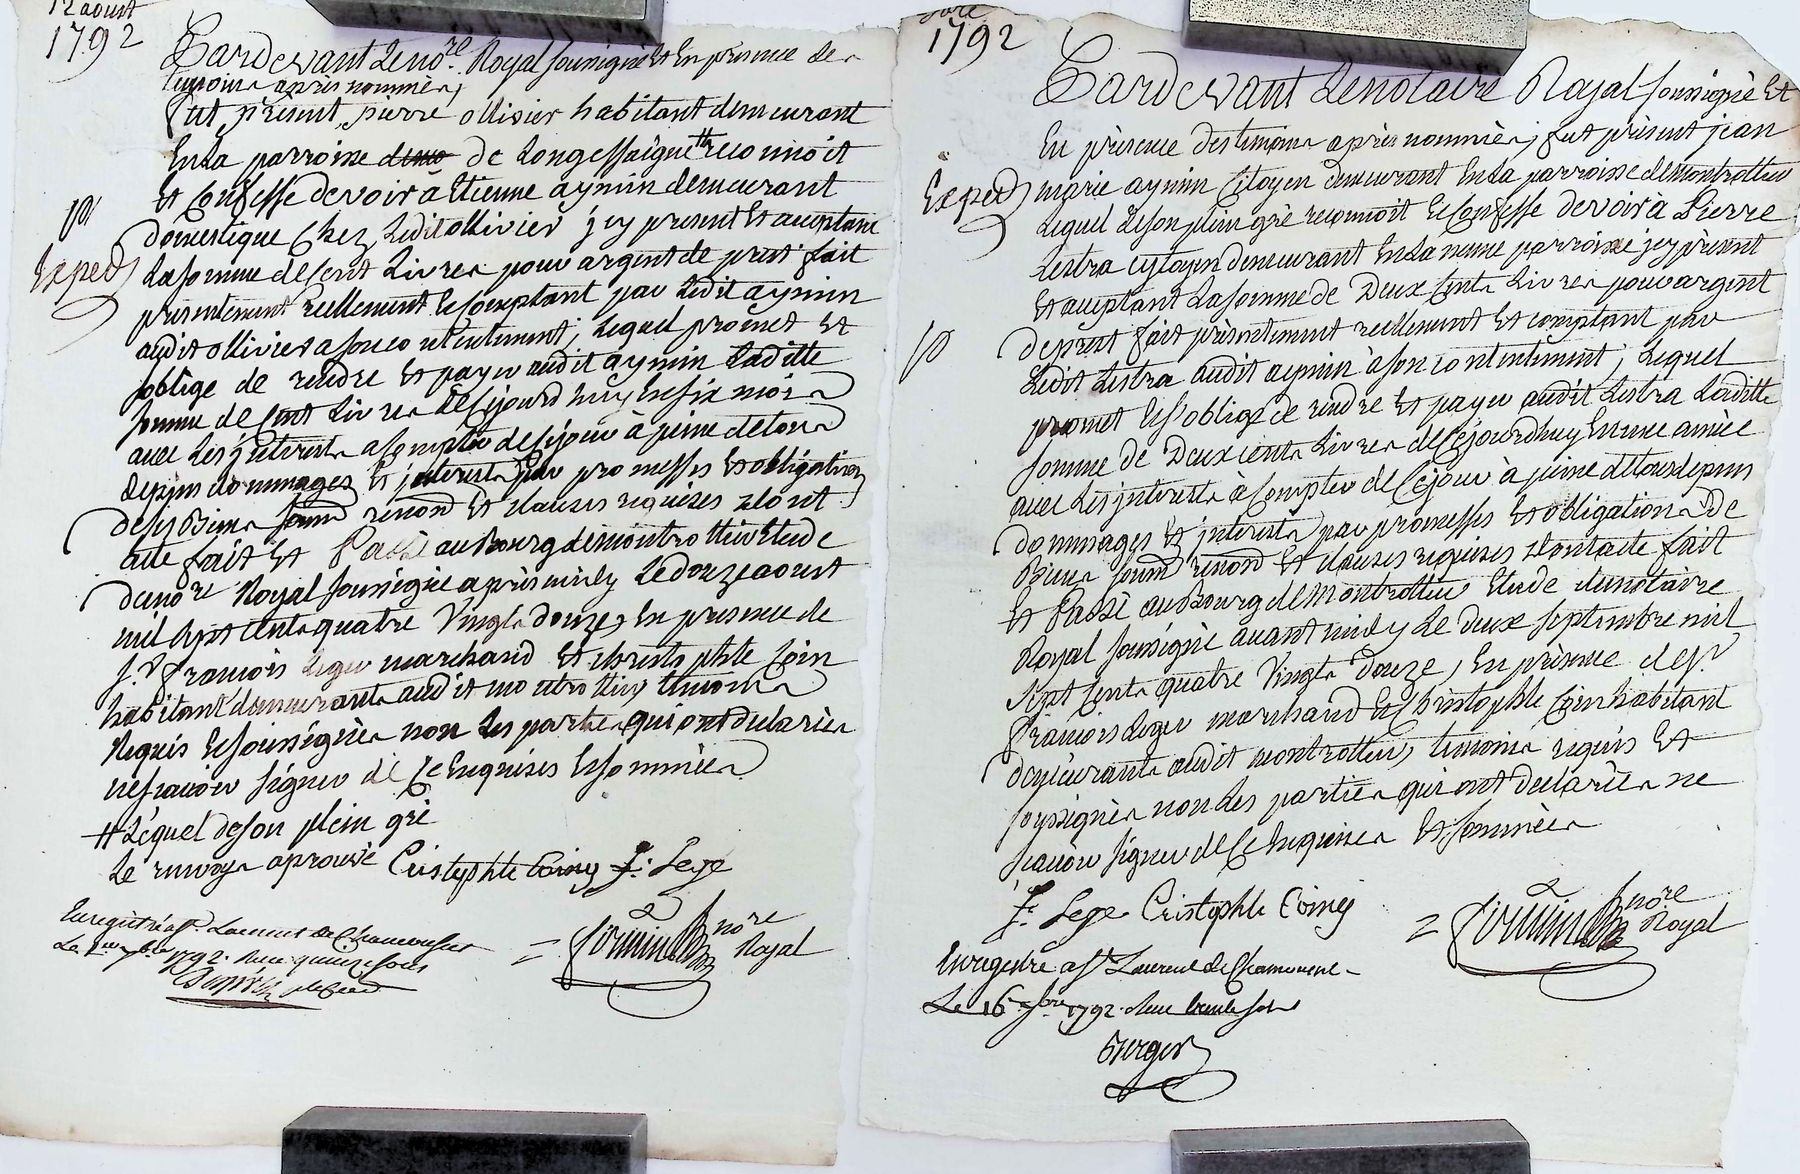 12 aoust
1792
Pardevant Le no.re Royal soussigné Et En presence des
temoins après nommés,
fut présent, pierre ollivier habitant demeurant
En La parroisse de Longessaigne # reconnoit
Et Confesse devoir à Etienne aymin demeurant
domestique Chez Ledit ollivier jcy present Et acceptant
Exped
La somme de Cent Livres pour argent de prest fait
presentement reellement Et comptant par Ledit aymin
audit ollivier a son contentement, Lequel promet Et
soblige de rendre Et payer audit aymin Laditte
somme de Cent Livres de Cejourd'huy En six mois
avec Les jnterests a Compter de Cejour à peine de tous
depens dommages Et jnterests par promesses Et obligation
de ses Biens soum renon Et clauses requises dont
acte fait Et Passé au Bourg de montrottier Etude
du no.re Royal soussigné après midy Le douze aoust
mil sept Cents quatre Vingts douze, En presence de
s.r François Leger marchand Et christophle Coin
habitant demeurants audit montrottier, temoins
Requis Et soussignés non Les parties qui ont declarés
ne sçavoir signer de Ce Enquises Et sommées
# Lequel de son plein gré
Le renvoy aprouvé Cristophle Coing f. Lege
Enregistré a St Laurent de Chamousset
Le 1er 7bre 1792. Reçu quinze sous
no.re
Royal
1792
Pardevant Le notaire Royal soussigné Et
En présence des temoins après nommés, fut présent jean
Exped
marie aymin Citoyen demeurant En La parroisse de Montrottier
Lequel de son plein gré reconnoit Et Confesse devoir à Pierre
Lestra Cytoyen demeurant En La meme parroisse jcy présent
Et acceptant La somme de Deux Cents Livres pour argent
de prest fait présentement reellement Et comptant par
Ledit Lestra audit aymin à son contentement, Lequel
promet Et s'oblige de rendre Et payer audit Lestra Laditte
somme de Deux cents Livres de Cejourdhuy En une année
avec Les jnterests à Compter de Cejour à peine de tous depens
dommages Et jnterests par promesses Et obligation de
Biens soum renon Et clauses requises dont acte fait
Et Passé au Bourg de Montrottier Etude du notaire
Royal soussigné avant midy Le deux septembre mil
sept Cents quatre Vingts Douze, En présence de s.r
François Leger marchand Et Christophle Coin habitant
demeurants audit montrottier, temoins requis Et
soussignés non Les parties qui ont declarées ne
scavoir signer de Ce Enquises Et sommées
f. Lege Cristophle Coing
no.re
Royal
Enregistré a St Laurent de Chamousset
Le 16 7bre 1792. Reçu trente sols
Berger